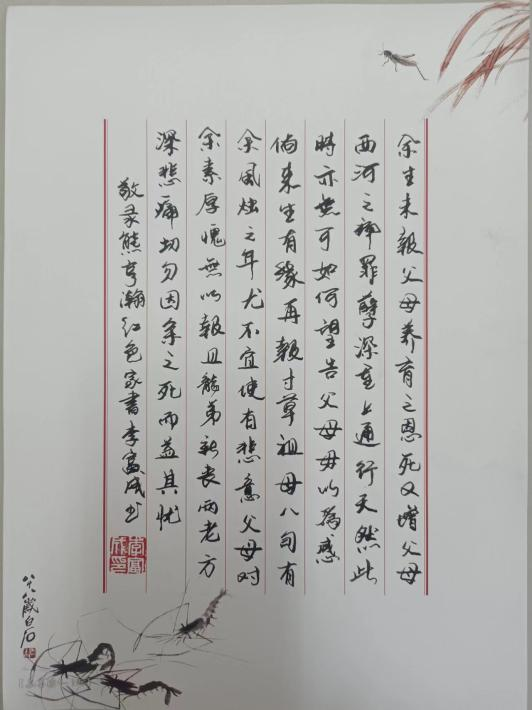 余生未報父母养育之恩死又增父母
西河之痛罪孽深重上通行天然此
時亦無可如何望告父母毋以為感
倘来生有缘再報寸草祖母八旬有
余風烛之年尤不宜使有悲意父母对
余素厚愧無以報且龍弟新丧两老方
深悲痛切勿因余之死而益其忧
敬录熊亨瀚红色家書李富成书
李富成印
八十八歲白石